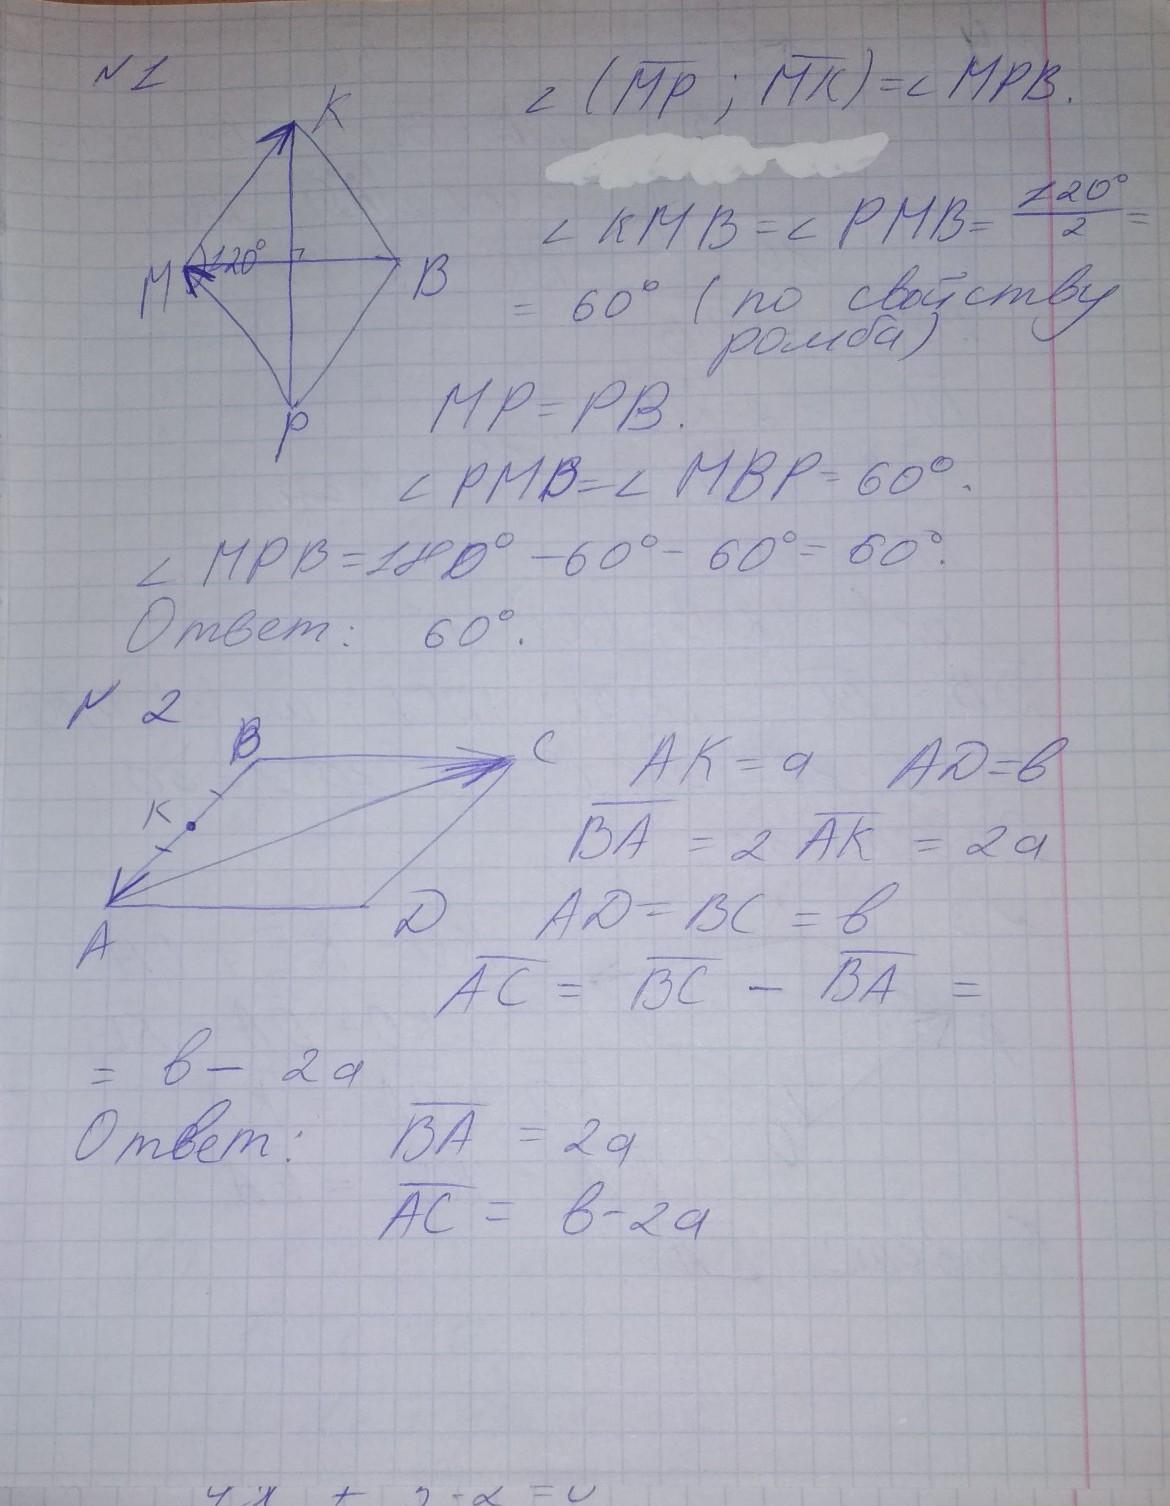 N 1
K
M
120°
B
P
∠ (MP ; MK) = ∠ MPB.
∠ KMB = ∠ PMB = 120°/2 =
= 60° (по свойству
ромба)
MP = PB.
∠ PMB = ∠ MBP = 60°.
∠ MPB = 180° - 60° - 60° = 60°.
Ответ: 60°.
N 2
B
C
K
A
D
AK = a AD = b
BA = 2 AK = 2a
AD = BC = b
AC = BC - BA =
= b - 2a
Ответ: BA = 2a
AC = b - 2a